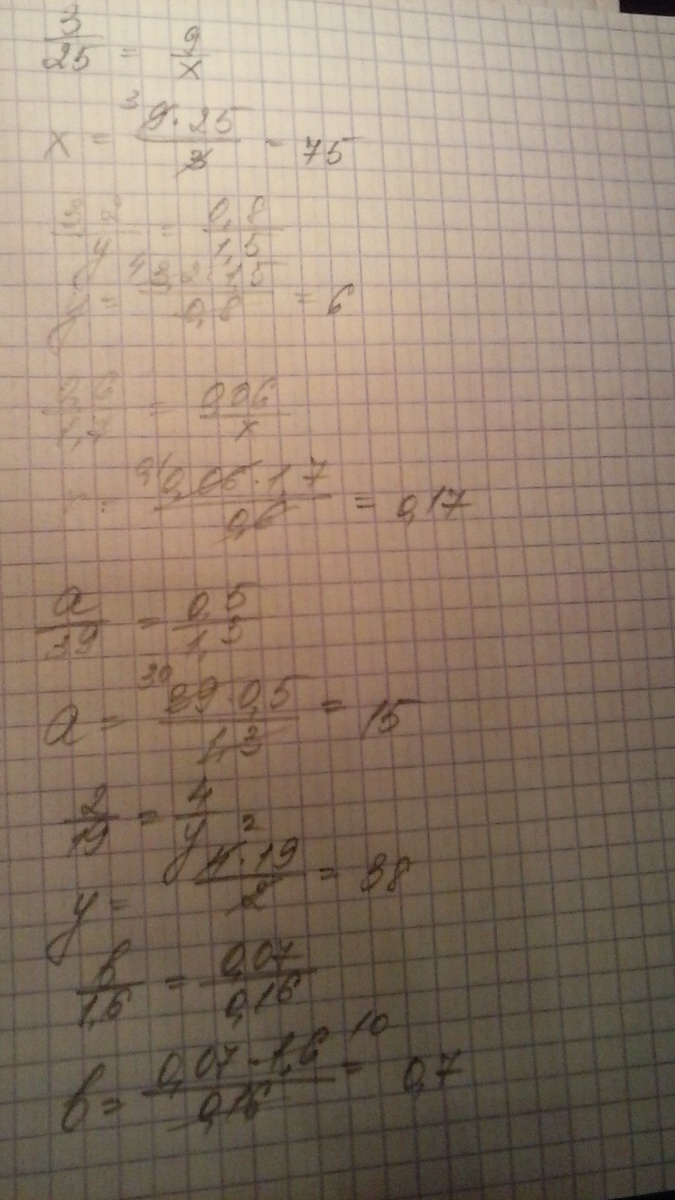 3/25 = 9/x
x = 3 9·25/3 = 75
3,2/y = 0,8/1,5
y = 4 3,2·1,5/0,8 = 6
0,6/1,7 = 0,06/x
x = 0,1 0,06·1,7/0,6 = 0,17
a/39 = 0,5/1,3
a = 30 39·0,5/1,3 = 15
2/19 = 4/y
y = 2 4·19/2 = 38
b/1,6 = 0,07/0,16
b = 0,07·1,6 10/0,16 = 0,7